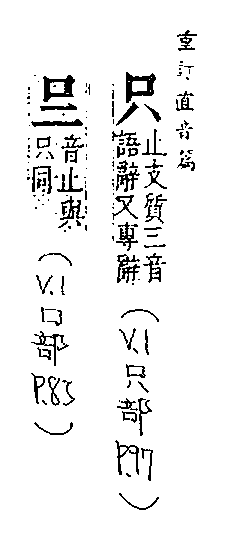 重訂直音篇
只
止支質三音
語辭又專辭
（V.1只部P.97）
音止與
只同
（V.1口部P.83）